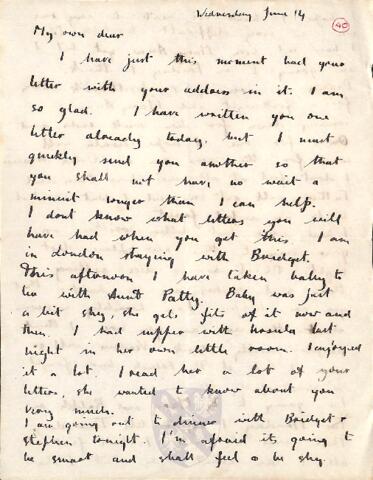 Wednesday June 14
40
My own dear
I have just this moment had your
letter with your address in it. I am
so glad. I have written you one
letter already today, but I must
quickly send you another so that
you shall not have, no wait a
minuit longer than I can help.
I dont know what letters you will
have had when you get this I am
in London staying with Bridget.
This afternoon I have taken baby to
tea with Aunt Patty. Baby was just
a bit shy, she gets fits of it now and
then. I had supper with Ursula last
night in her own little room. I enjoyed
it a lot. I read her a lot of your
letters, she wanted to know about you
very much.
I am going out to dinner with Bridget &
Stephen tonight. I'm afraid its going to
be smart and shall feel a be shy.